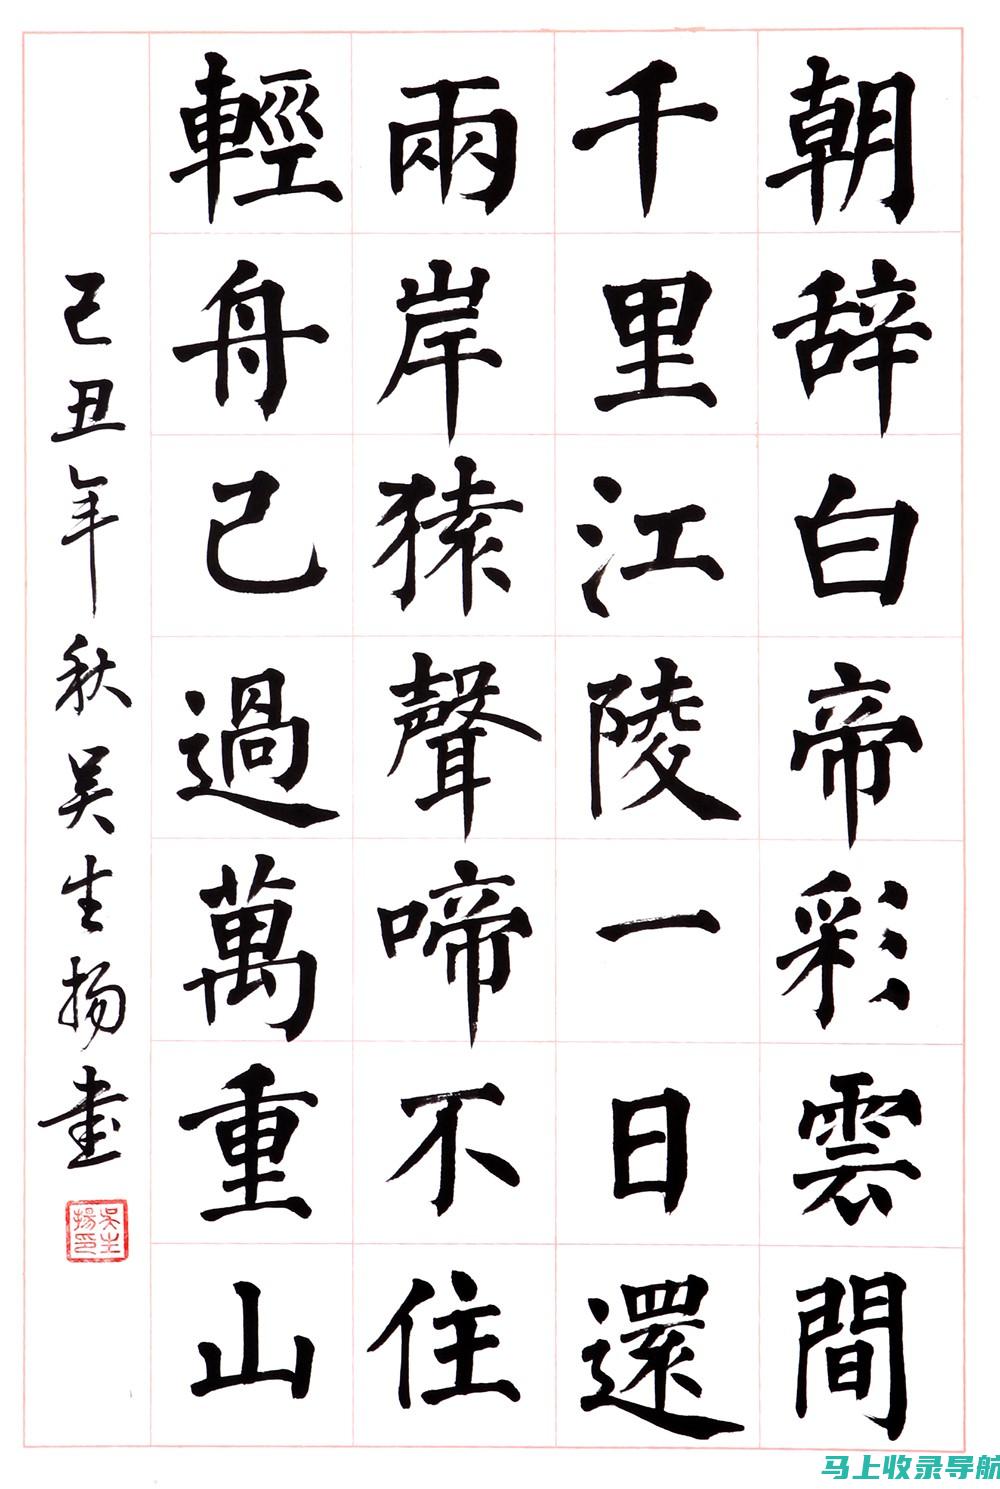 朝辞白帝彩雲間
千里江陵一日還
兩岸猿聲啼不住
輕舟已過萬重山
己丑年秋吴生扬书
吳生揚印
马上收录导航